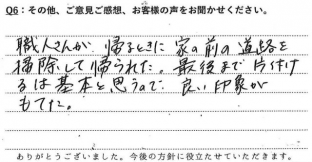 Q6：その他、ご意見ご感想、お客様の声をお聞かせください。
職人さんが 帰るときに 家の前の道路を
掃除して帰られた。最後まで片付け
るは基本と思うので 良い印象が
もてた。
ありがとうございました。今後の方針に役立たせていただきます。